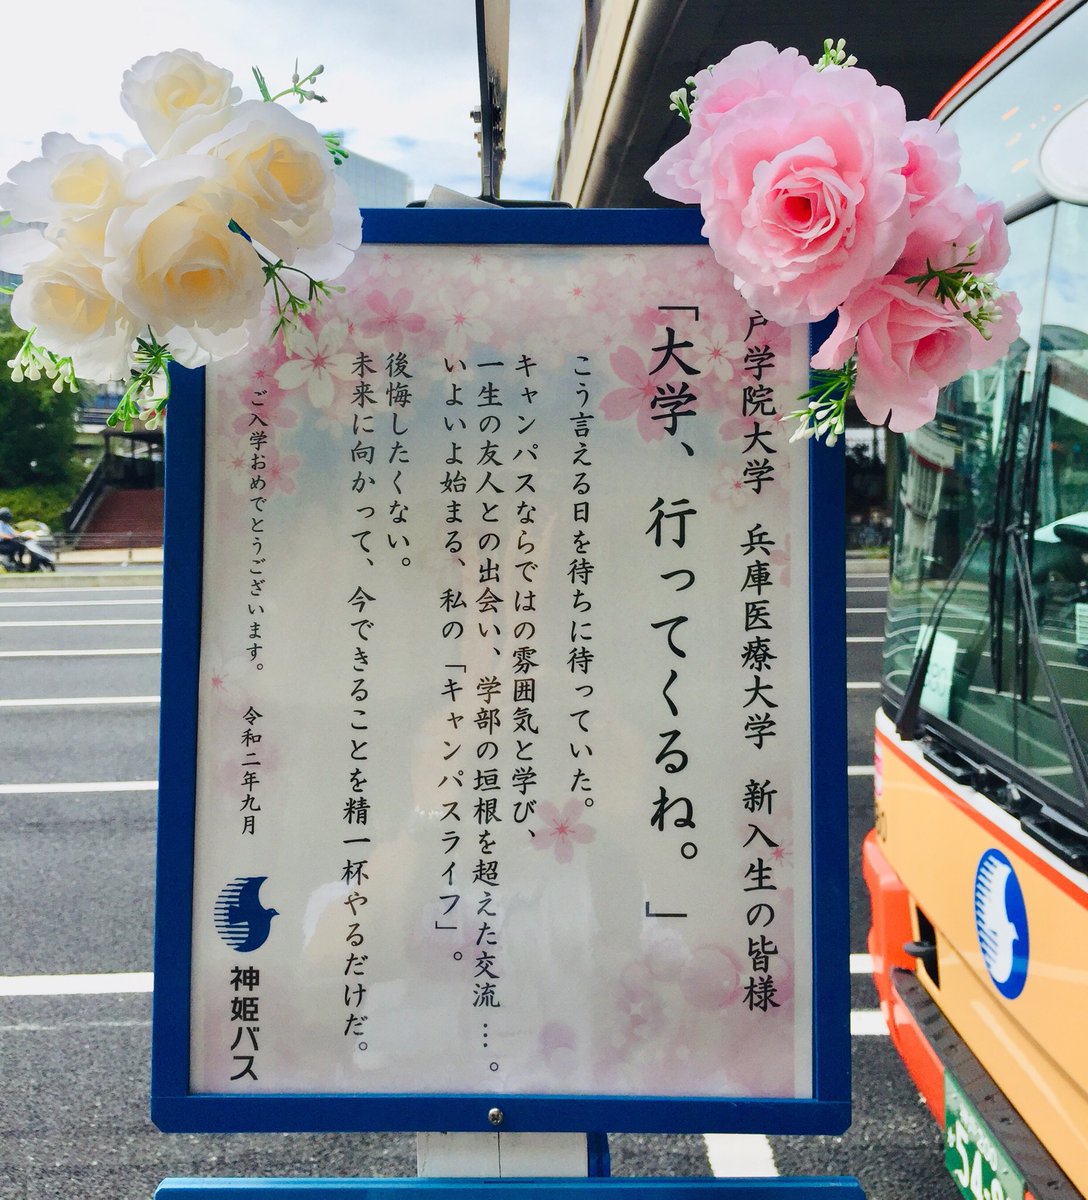 戸学院大学 兵庫医療大学 新入生の皆様
「大学、行ってくるね。」
こう言える日を待ちに待っていた。
キャンパスならではの雰囲気と学び、
一生の友人との出会い、学部の垣根を超えた交流…。
いよいよ始まる、私の「キャンパスライフ」。
後悔したくない。
未来に向かって、今できることを精一杯やるだけだ。
ご入学おめでとうございます。 令和二年九月
神姫バス